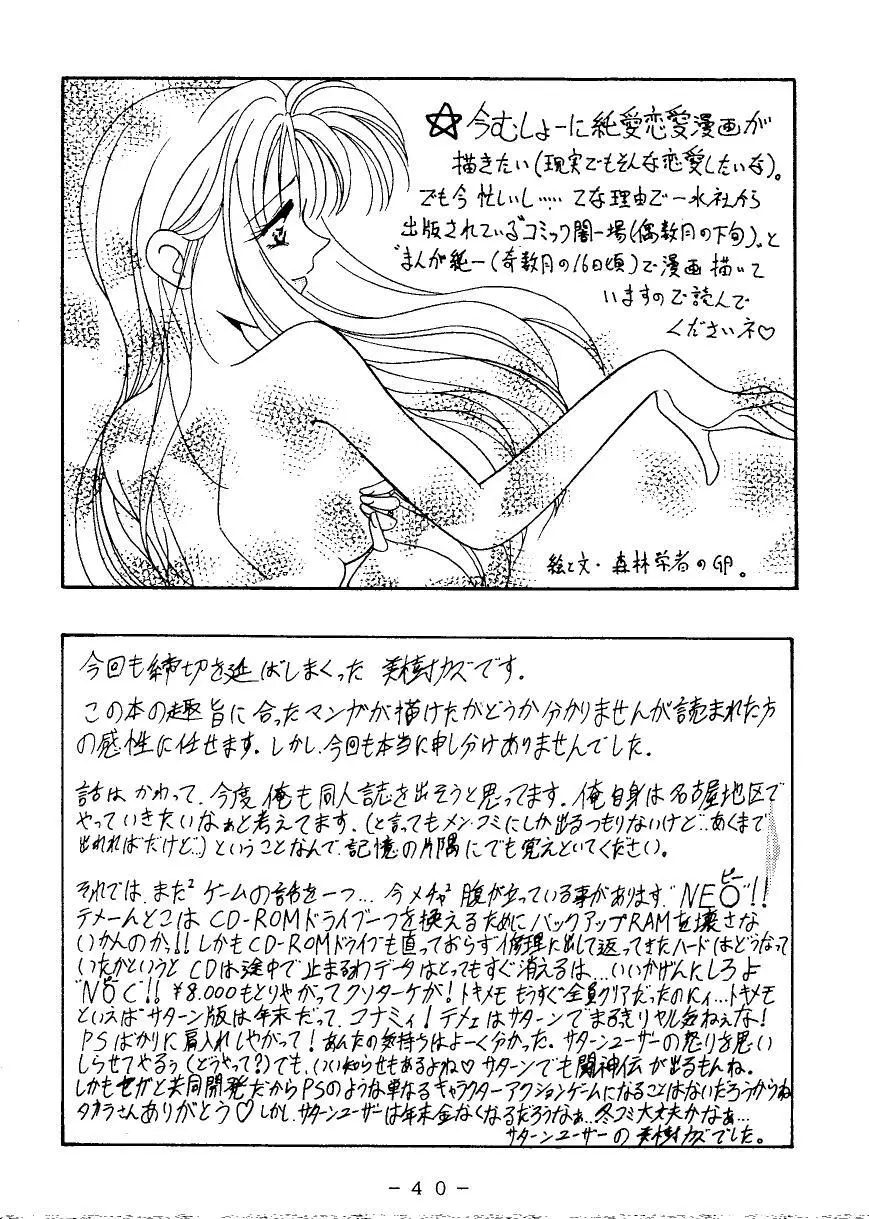 ☆今むしょーに純愛恋愛漫画が
描きたい(現実でもそんな恋愛したいな)。
でも今忙しいし…‥てな理由で一水社から
出版されている"コミック闇市場(偶数月の下旬)。と
"まんが純一(奇数月の16日頃)で漫画描いて
いますので読んで
くださいネ♡
絵と文・森林学者のGP。
今回も締切を延ばしまくった 美樹カズです。
この本の趣旨に合ったマンガが描けたかどうか分かりませんが読まれた方
の感性に任せます。しかし、今回も本当に申し分けありませんでした。
話はかわって、今度俺も同人誌を出そうと思ってます。俺自身は名古屋地区で
やっていきたいなぁと考えてます。(と言ってもメンズ・コミにしか出るつもりないけど…あくまで
出れればだけど…)ということなんで、記憶の片隅にでも覚えといてください。
それでは、また²ゲームの話を一つ…今メチャ²腹が立っている事があります"NE○"!!
ピー
テメーんとこはCD-ROMドライブ一つを換えるためにバックアップRAMを壊さな
いかんのかっ!!しかもCD-ROMドライブも直っておらず修理に出して返ってきたハードはどうなって
いたかというとCDは途中で止まるわデータはとってもすぐ消えるは…いいかげんにしろよ
"N○C"!!¥8.000もとりやがってクソターケが!トキメモもうすぐ全員クリアだったのにィ…トキメモ
ピー
といえばサターン版は年末だって、コナミィ!テメェはサターンでまるきりヤル気ねぇな!
PSばかりに肩入れしやがって!あんたの気持ちはよーく分かった。サターンユーザーの怒りを思い
しらせてやるぅ(どうやって?)でも、いい知らせもあるよね♡サターンでも闘神伝が出るもんね。
しかもセガと共同開発だからPSのような単なるキャラクターアクションゲームになることはないだろうからね
タカラさんありがとう♡しかし、サターンユーザーは年末金なくなるだろうなぁ…冬コミ大丈夫かなぁ…
サターンユーザーの美樹カズでした。
- 40 -